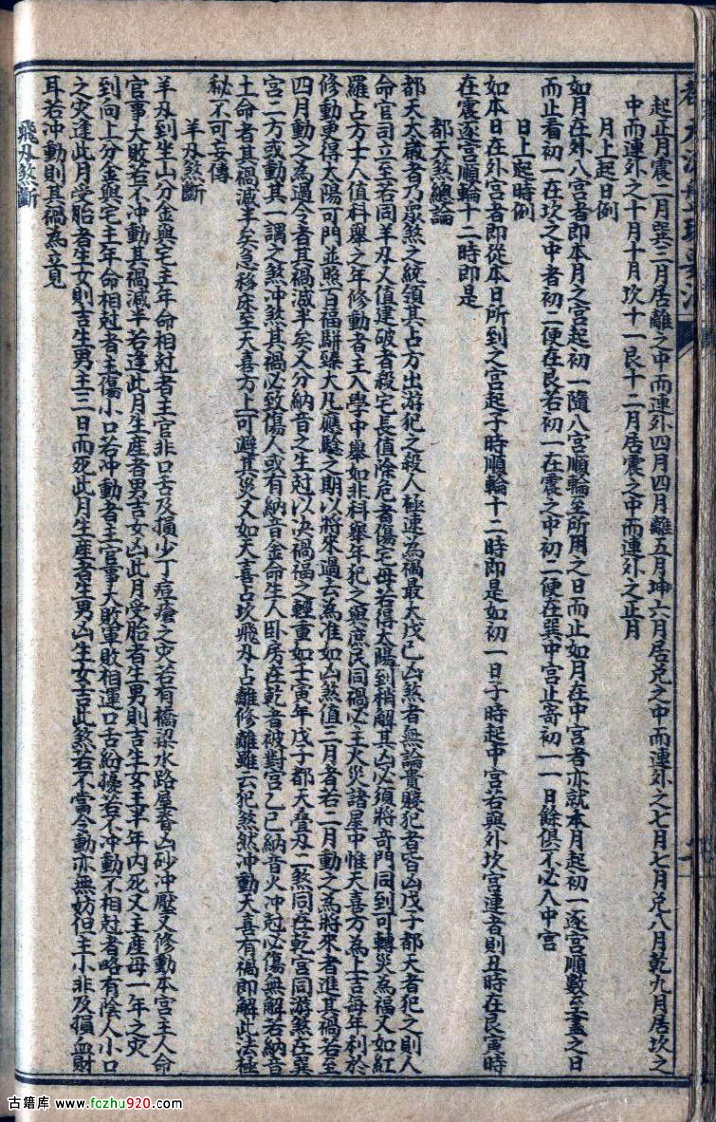 起正月震二月巽三月居離之中而連外四月四月離五月坤六月居兌之中而連外之七月七月兌八月乾九月居坎之
中而連外之十月十月坎十一艮十二月居震之中而連外之正月
月上起日例
如月在外八宮者即本月之宮起初一隨八宮順輪至所用之日而止如月在中宮者亦就本月起初一逐宮順數至盡之日
而止看初一在坎之中者初二便在艮若初一在震之中初二便在巽中宮止寄初一一日餘俱不必入中宮
日上起時例
如本日在外宮者即從本日所到之宮起子時順輪十二時即是如初一日子時起中宮若與外坎宮連者則丑時在艮寅時
在震逐宮順輪十二時即是
都天煞總論
都天太歲者乃眾煞之統領其占方出游犯之殺人極速為禍最大戊己凶煞者無論貴賤犯者皆凶戊子都天者犯之則人
命官司立至若同羊刃又值建破者殺宅長值除危者傷宅母若得太陽到稍解其凶必須將奇門同到可轉災為福又如紅
羅占方士人值科舉之年修動者主入學中舉如非科舉年犯之與庶民同禍必主火災諸星中惟天喜方為上吉每年利於
修動更得太陽可門並照百福駢臻大凡應驗之期以將來過去為准如凶煞值三月者若二月動之為將來者進其禍若至
四月動之為過今者其禍減半矣又分納音之生尅以決禍福之輕重如壬寅年戊子都天叠刃二煞同在乾宮同游煞在巽
宮二方或動其一謂之煞冲煞其禍必致傷人或有納音金命生人卧房在乾者被對宮乙巳納音火冲尅必傷無解若納音
土命者其禍減半矣急移床至天喜方上可避其災又如天喜占坎飛刃占離修離雖云犯煞煞冲動天喜有禍即解此法極
秘不可妄傳
羊刃煞斷
羊刃到坐山分金與宅主年命相尅者主官非口舌及損少丁痘瘡之災若有橋梁水路屋脊凶砂冲壓又修動本宮主人命
官事大敗若不冲動其禍減半若逢此月生產者男吉女凶此月受胎者生男則吉生女主半年內死又主產母一年之災
到向上分金與宅主年命相尅者主傷小口若冲動者主官事大敗軍敗相連口舌紛擾若不冲動不相尅者略有陰人小口
之災逢此月受胎者生女則吉生男主三日而死此月生產者生男凶生女吉此煞若不當令動亦無妨但主小非及損血財
耳若冲動則其禍為立見
飛刃煞斷
古籍库 www.fozhu920.com